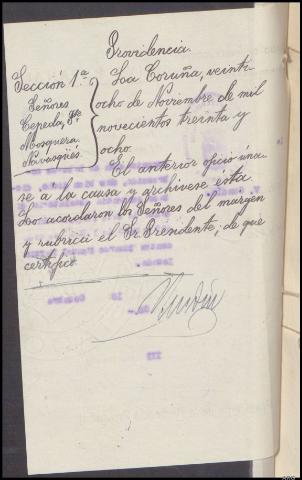 Providencia.
Sección 1.ª
Señores
Cepeda, Pte
Mosquera
Navasqüés
La Coruña, veinti-
ocho de Noviembre de mil
novecientos treinta y
ocho.
El anterior oficio úna-
se a la causa y archívese ésta
Lo acordaron los Señores del margen
y rubrica el Sr. Presidente; de que
certifico.